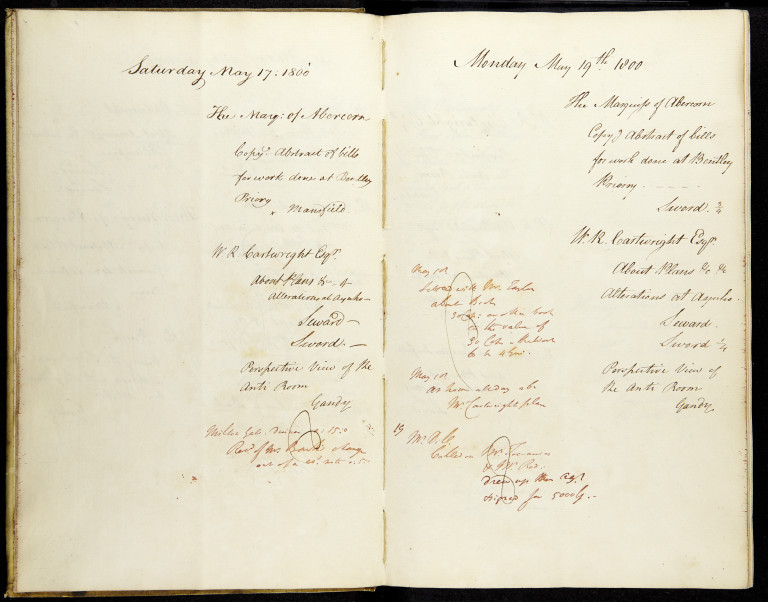 Saturday May 17. 1800
The Marq: of Abercorn
Copyg. Abstract of bills
for work done at Bentley
Priory
Mansfield.
W. R. Cartwright Esqr.
About Plans &c
Alterations at Aynho
Seward
Sword.
Perspective View of the
Anti Room
Gandy
Dinner
Recd of Mr change
out of a note
Monday May 19th 1800
The Marquiss of Abercorn
Copyg Abstract of bills
for work done at Bentley
Priory
Sword. 3/4
W. R. Cartwright Esqr.
About Plans &c &c
Alterations at Aynho.
Seward.
Sword 1/4
Perspective View of
the Anti Room
Gandy
May 1st
with Mr. Taylor
about
on
the value of
30
May 1st
at home all day abt
Mr Cartwrights plan
19
Called on Mr
drew up the Agt
signed for 5000